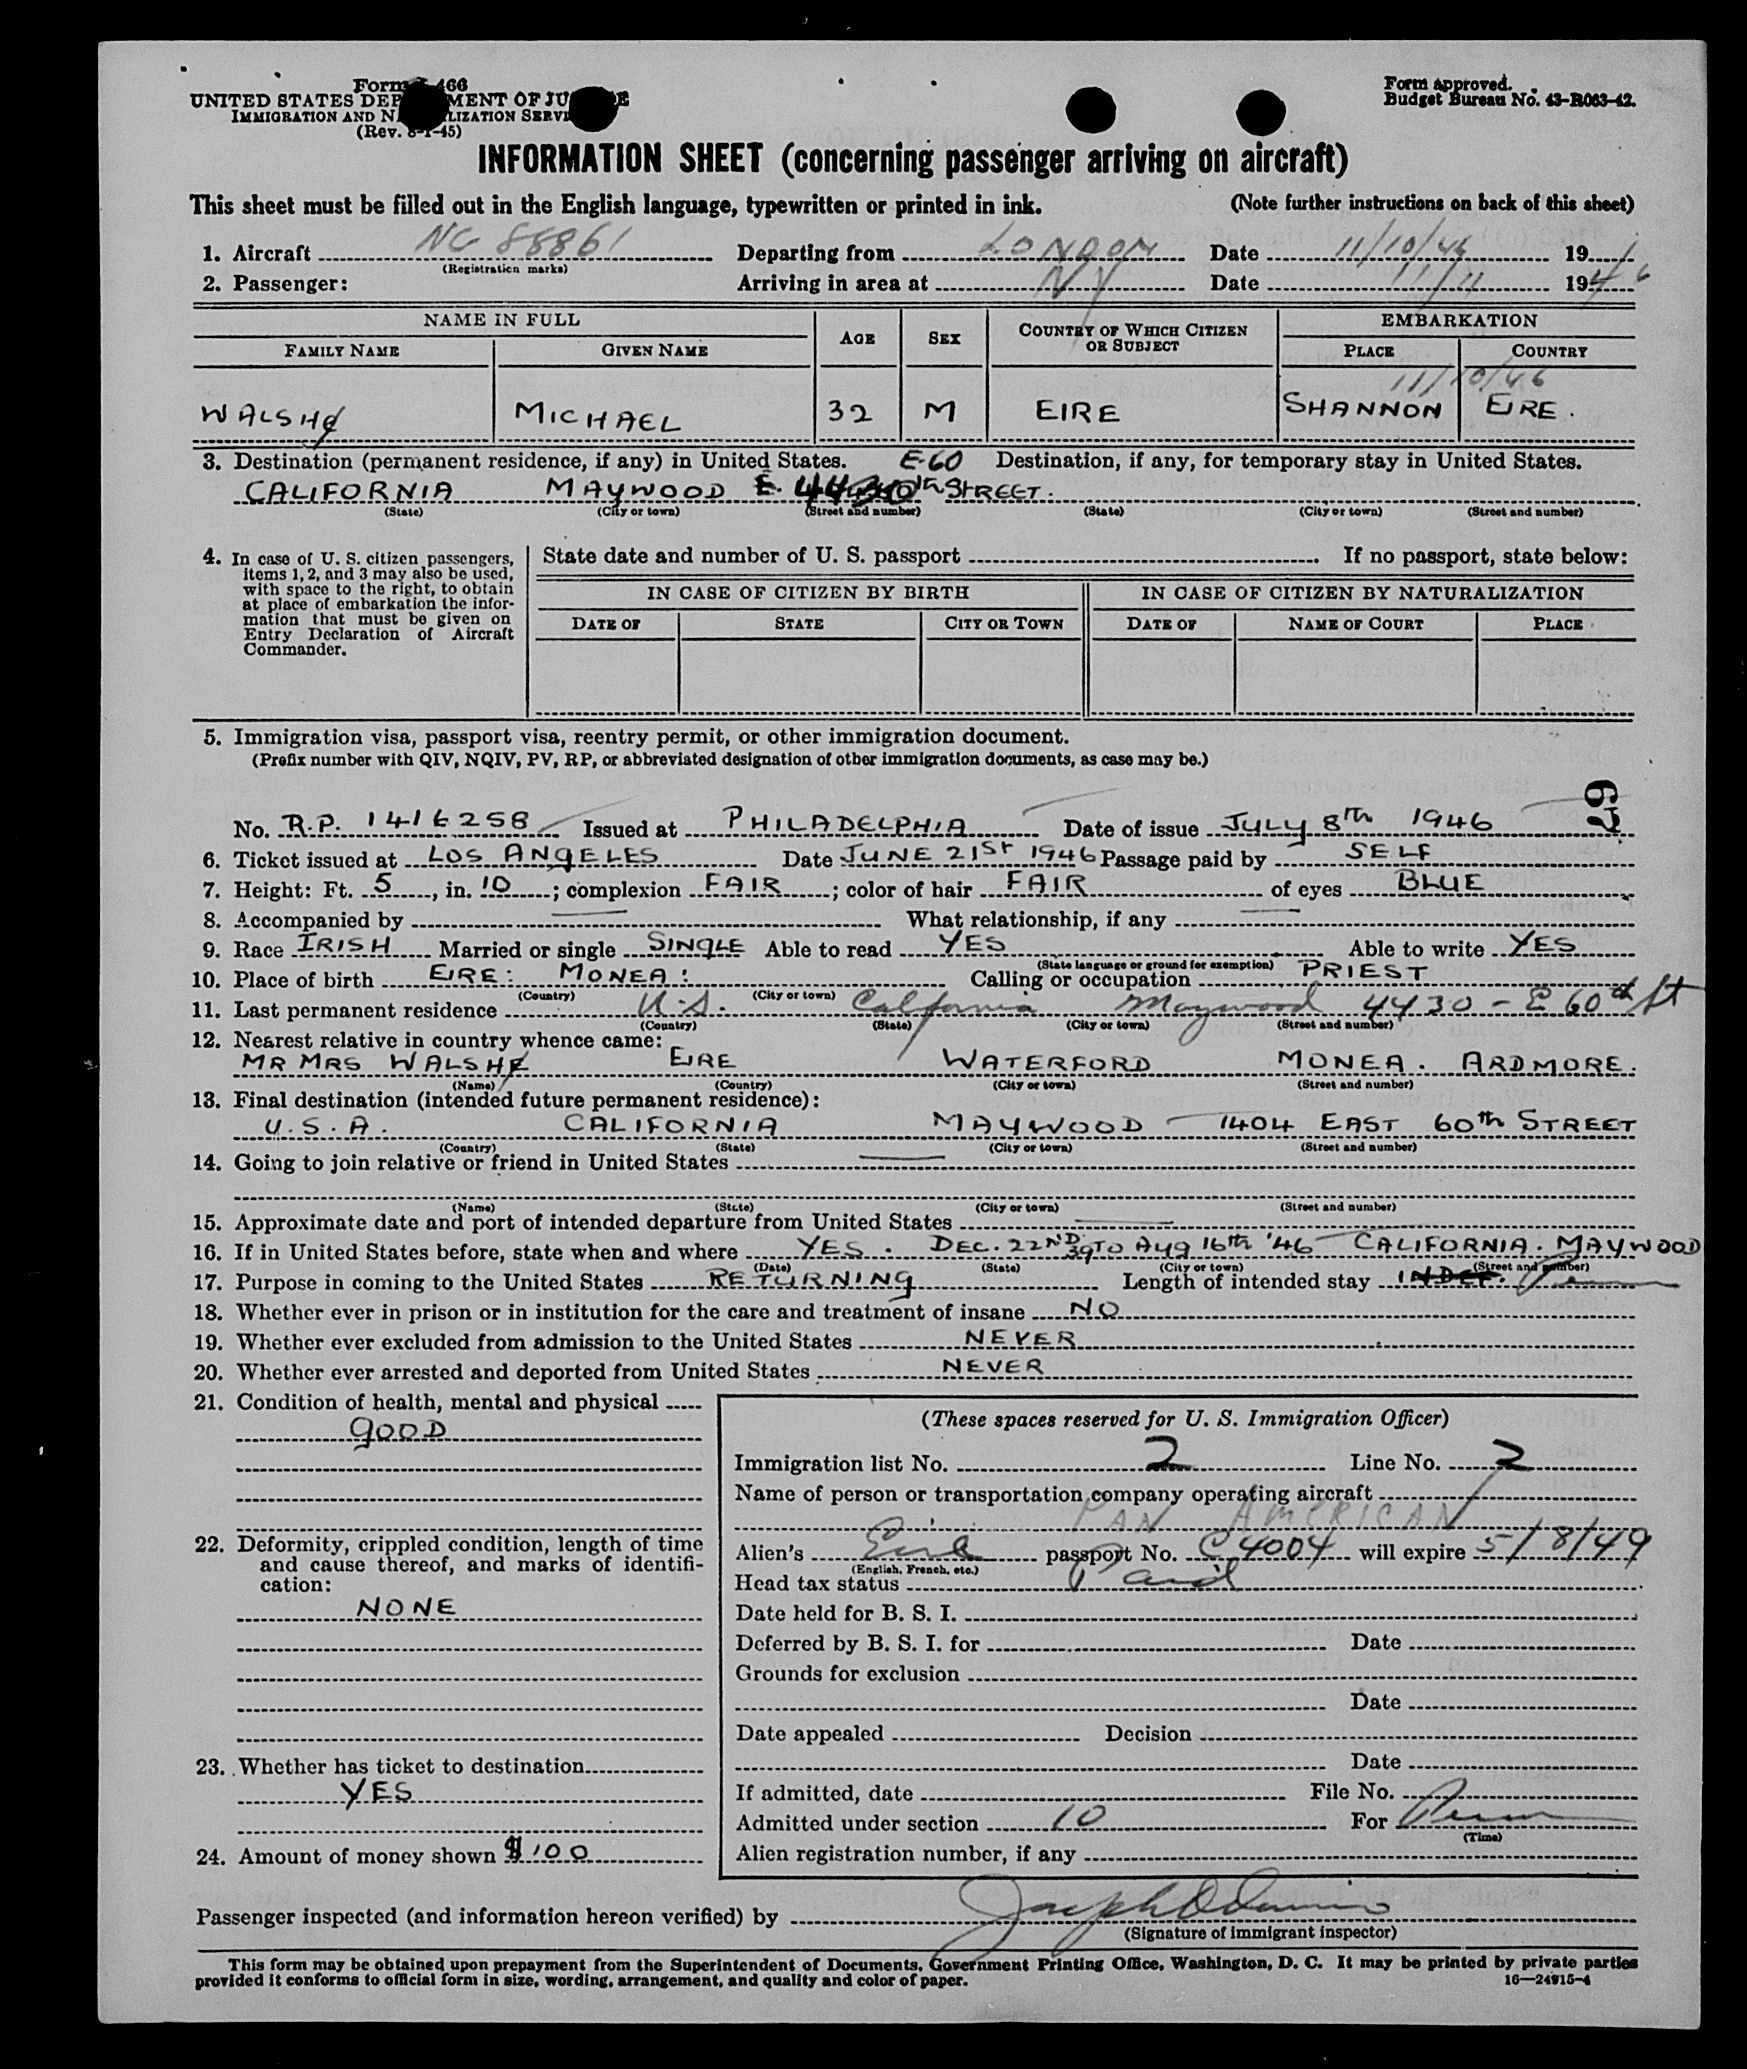 Form I-466
UNITED STATES DEPARTMENT OF JUSTICE
IMMIGRATION AND NATURALIZATION SERVICE
(Rev. 8-1-45)
Form approved.
Budget Bureau No. 43-R063-42.
INFORMATION SHEET (concerning passenger arriving on aircraft)
This sheet must be filled out in the English language, typewritten or printed in ink. (Note further instructions on back of this sheet)
1. Aircraft NC 88861 Departing from LONDON Date 11/10/46 19
(Registration marks)
2. Passenger: Arriving in area at NY Date 11/11 1946
NAME IN FULL AGE SEX COUNTRY OF WHICH CITIZEN OR SUBJECT EMBARKATION
FAMILY NAME GIVEN NAME PLACE COUNTRY
11/10/46
WALSHE MICHAEL 32 M EIRE SHANNON EIRE.
3. Destination (permanent residence, if any) in United States. E-60 Destination, if any, for temporary stay in United States.
CALIFORNIA MAYWOOD E. 4430 th STREET.
(State) (City or town) (Street and number) (State) (City or town) (Street and number)
4. In case of U. S. citizen passengers, items 1, 2, and 3 may also be used, with space to the right, to obtain at place of embarkation the information that must be given on Entry Declaration of Aircraft Commander.
State date and number of U. S. passport If no passport, state below:
IN CASE OF CITIZEN BY BIRTH IN CASE OF CITIZEN BY NATURALIZATION
DATE OF STATE CITY OR TOWN DATE OF NAME OF COURT PLACE
5. Immigration visa, passport visa, reentry permit, or other immigration document.
(Prefix number with QIV, NQIV, PV, RP, or abbreviated designation of other immigration documents, as case may be.)
29
No. R.P. 1416258 Issued at PHILADELPHIA Date of issue JULY 8th 1946
6. Ticket issued at LOS ANGELES Date JUNE 21st 1946 Passage paid by SELF
7. Height: Ft. 5, in. 10; complexion FAIR; color of hair FAIR of eyes BLUE
8. Accompanied by — What relationship, if any —
9. Race IRISH Married or single SINGLE Able to read YES Able to write YES
(State language or ground for exemption)
10. Place of birth EIRE: MONEA: Calling or occupation PRIEST
(Country) (City or town)
11. Last permanent residence U.S. California Maywood 4430 - E 60th St
(Country) (State) (City or town) (Street and number)
12. Nearest relative in country whence came:
MR MRS WALSHE EIRE WATERFORD MONEA. ARDMORE.
(Name) (Country) (City or town) (Street and number)
13. Final destination (intended future permanent residence):
U.S.A. CALIFORNIA MAYWOOD — 1404 EAST 60th STREET
(Country) (State) (City or town) (Street and number)
14. Going to join relative or friend in United States —
(Name) (State) (City or town) (Street and number)
15. Approximate date and port of intended departure from United States —
16. If in United States before, state when and where YES. DEC. 22ND 39 TO Aug 16th '46 — CALIFORNIA. MAYWOOD
(Date) (State) (City or town) (Street and number)
17. Purpose in coming to the United States RETURNING Length of intended stay INDEF. Perm
18. Whether ever in prison or in institution for the care and treatment of insane NO
19. Whether ever excluded from admission to the United States NEVER
20. Whether ever arrested and deported from United States NEVER
21. Condition of health, mental and physical
GOOD
22. Deformity, crippled condition, length of time and cause thereof, and marks of identification:
NONE
23. Whether has ticket to destination
YES
24. Amount of money shown $100
(These spaces reserved for U. S. Immigration Officer)
Immigration list No. 2 Line No. 2
Name of person or transportation company operating aircraft
PAN AMERICAN
Alien's Eire passport No. C4004 will expire 5/8/49
(English, French, etc.)
Head tax status Paid
Date held for B. S. I.
Deferred by B. S. I. for Date
Grounds for exclusion
Date
Date appealed Decision
Date
If admitted, date File No.
Admitted under section 10 For Perm
(Time)
Alien registration number, if any
Passenger inspected (and information hereon verified) by
(Signature of immigrant inspector)
This form may be obtained upon prepayment from the Superintendent of Documents, Government Printing Office, Washington, D. C. It may be printed by private parties
provided it conforms to official form in size, wording, arrangement, and quality and color of paper. 16—24915-4